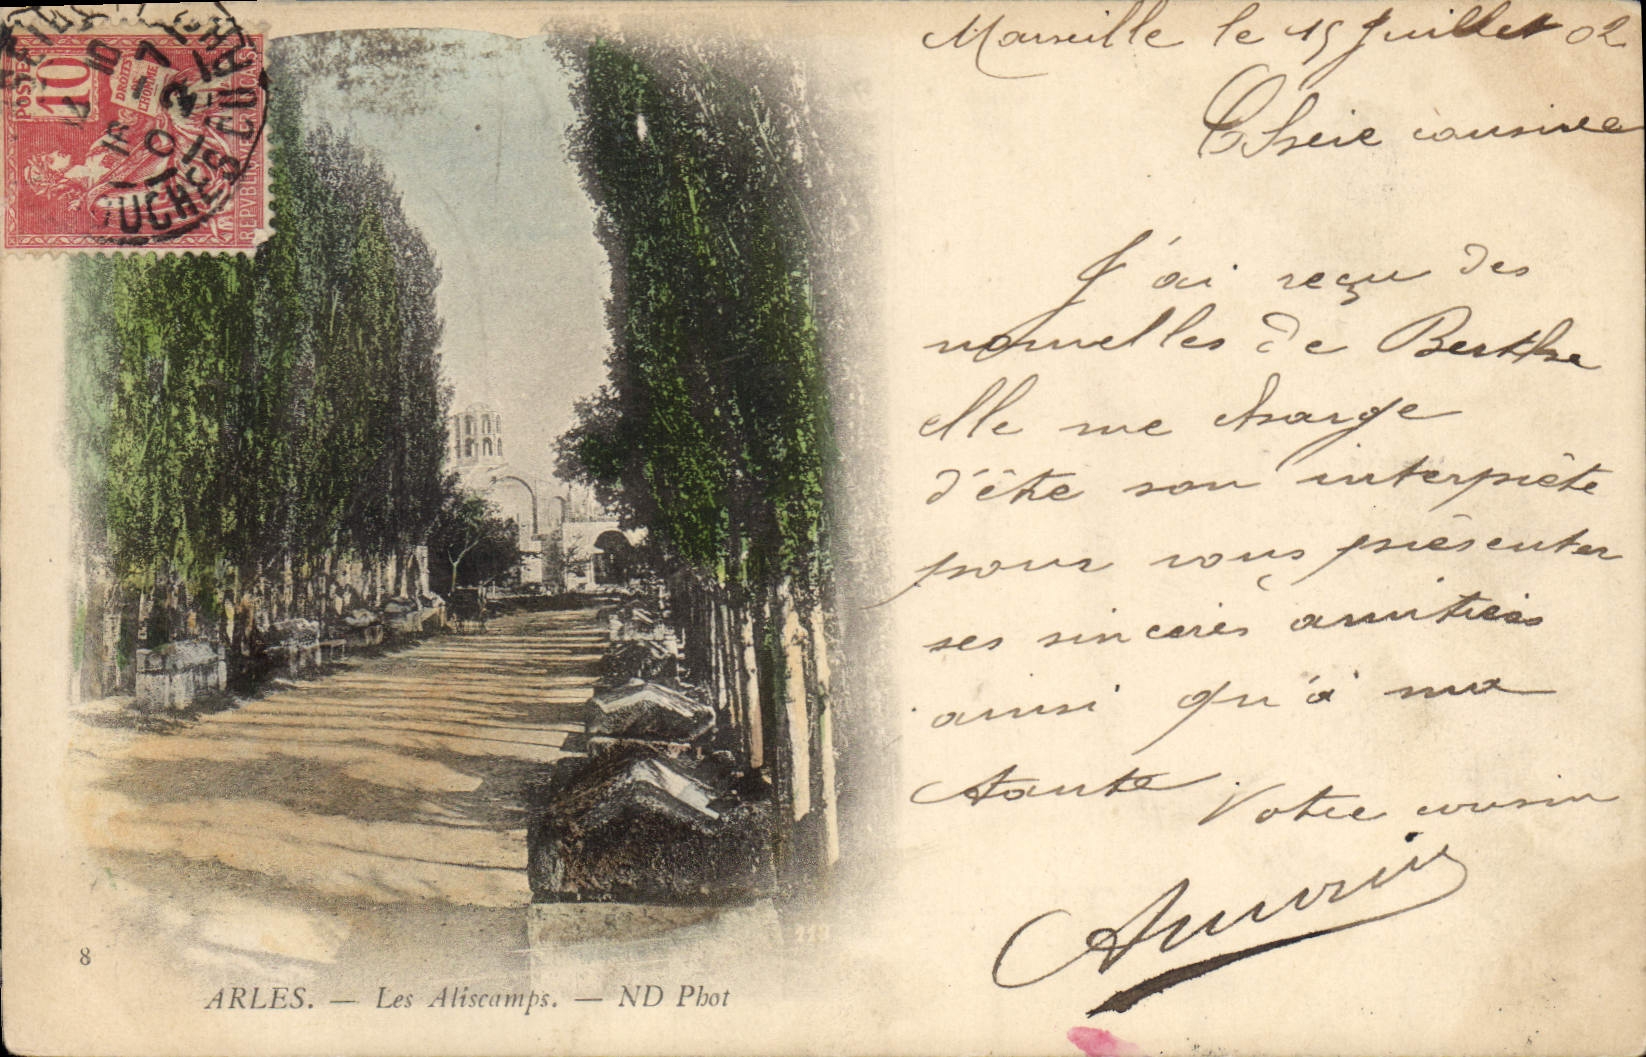 Marseille le 15 Juillet 02
Chère cousine
J'ai reçu des
nouvelles de Berthe
elle me charge
d'être son interprète
pour vous présenter
ses sincères amitiés
ainsi qu'à ma
tante Votre cousin
POSTES
10
DROITS
DE
L'HOMME
REPVBLIQVE FRANÇAISE
BOUCHES DU RH
8
ARLES. — Les Aliscamps. — ND Phot